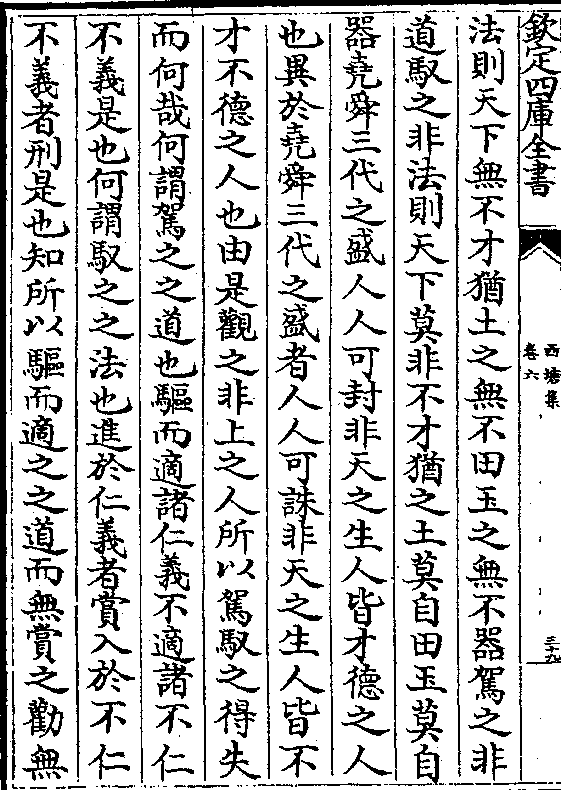 欽定四庫全書
西塘集
卷六
三十九
法則天下無不才猶土之無不田玉之無不器駕之非
道馭之非法則天下莫非不才猶之土莫自田玉莫自
器堯舜三代之盛人人可封非天之生人皆才德之人
也異於堯舜三代之盛者人人可誅非天之生人皆不
才不德之人也由是觀之非上之人所以駕馭之得失
而何哉何謂駕之之道也驅而適諸仁義不適諸不仁
不義是也何謂馭之之法也進於仁義者賞入於不仁
不義者刑是也知所以驅而適之之道而無賞之勸無